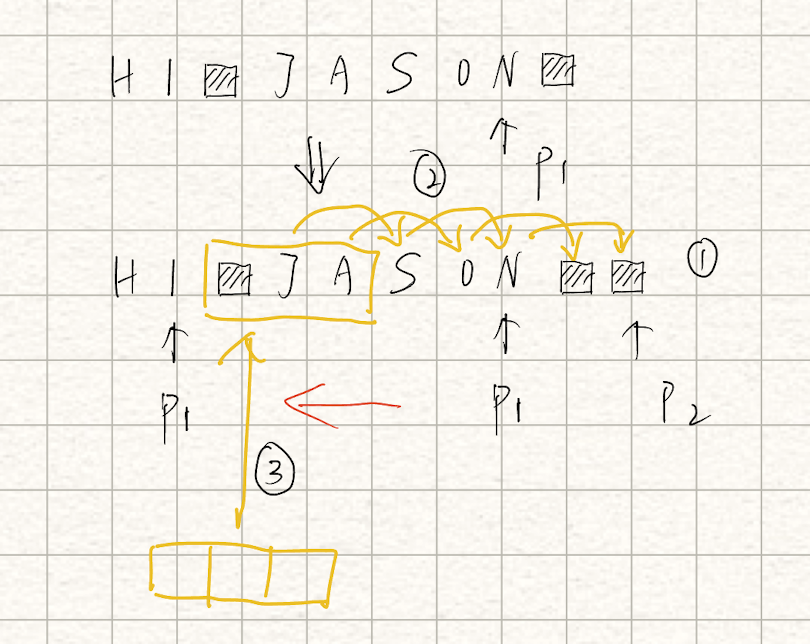 H I ▨ J A S O N ▨
② P1
H I ▨ J A S O N ▨ ▨ ①
P1 P1 P2
③